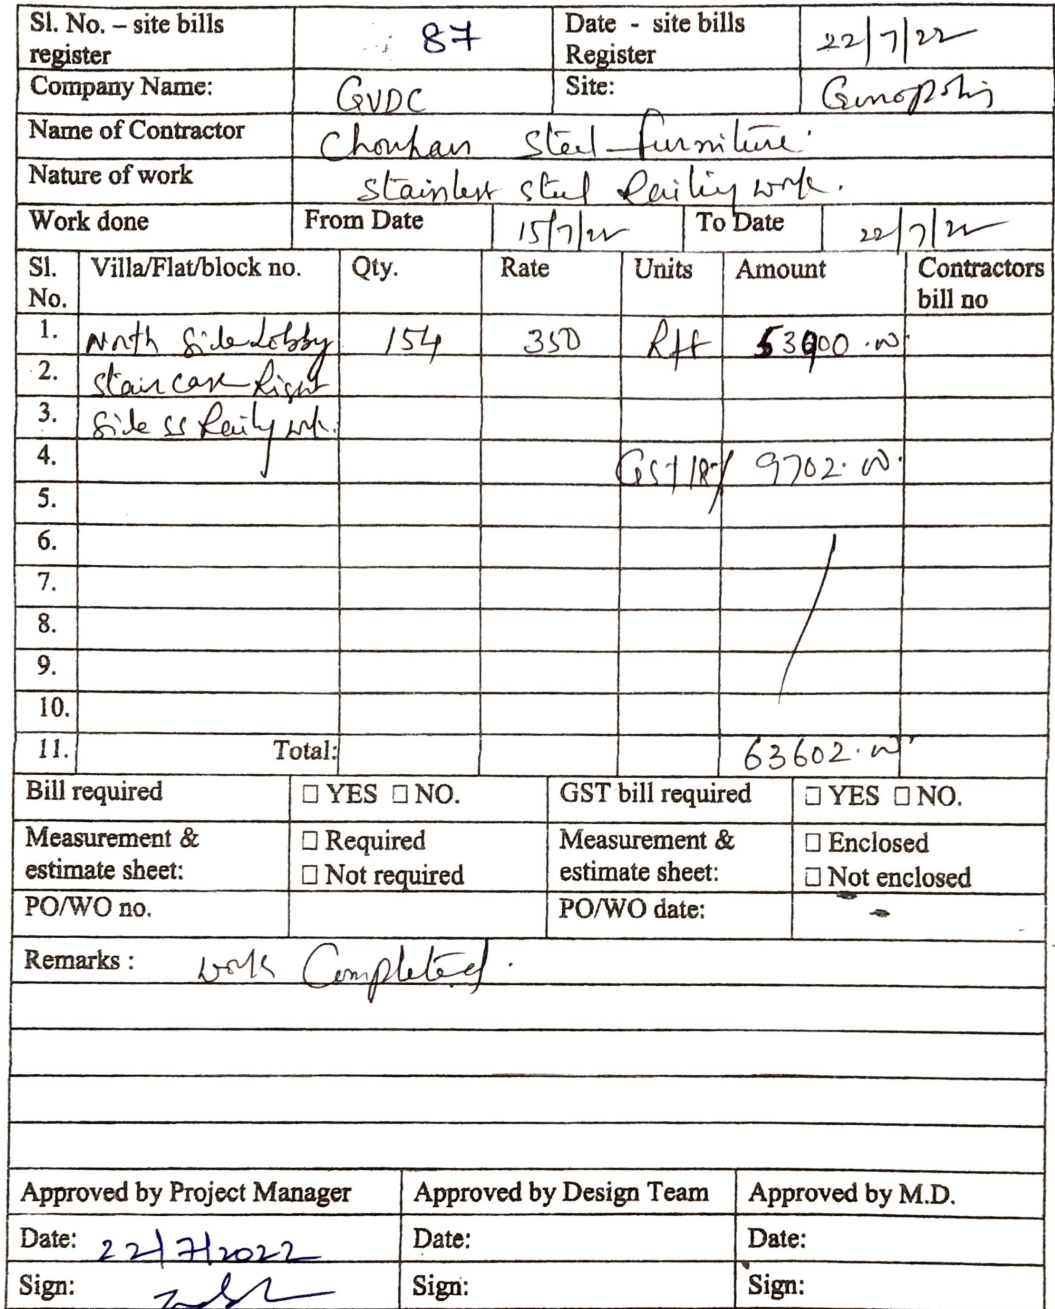 Sl. No. – site bills register 87 Date - site bills Register 22/7/22
Company Name: GVDC Site: Genopolis
Name of Contractor Chouhan Steel Furniture.
Nature of work Stainless steel Railing work.
Work done From Date 15/7/22 To Date 22/7/22
Sl. No. Villa/Flat/block no. Qty. Rate Units Amount Contractors bill no
1. North Side Lobby 154 350 Rft 53900.00
2. Stair case Right
3. Side SS Railing wrk.
4. GST 18% 9702.00
5.
6.
7.
8.
9.
10.
11. Total: 63602.00
Bill required □ YES □ NO. GST bill required □ YES □ NO.
Measurement & estimate sheet: □ Required □ Not required Measurement & estimate sheet: □ Enclosed □ Not enclosed
PO/WO no. PO/WO date:
Remarks : work Completed.
Approved by Project Manager Approved by Design Team Approved by M.D.
Date: 22/7/2022 Date: Date:
Sign: Sign: Sign: